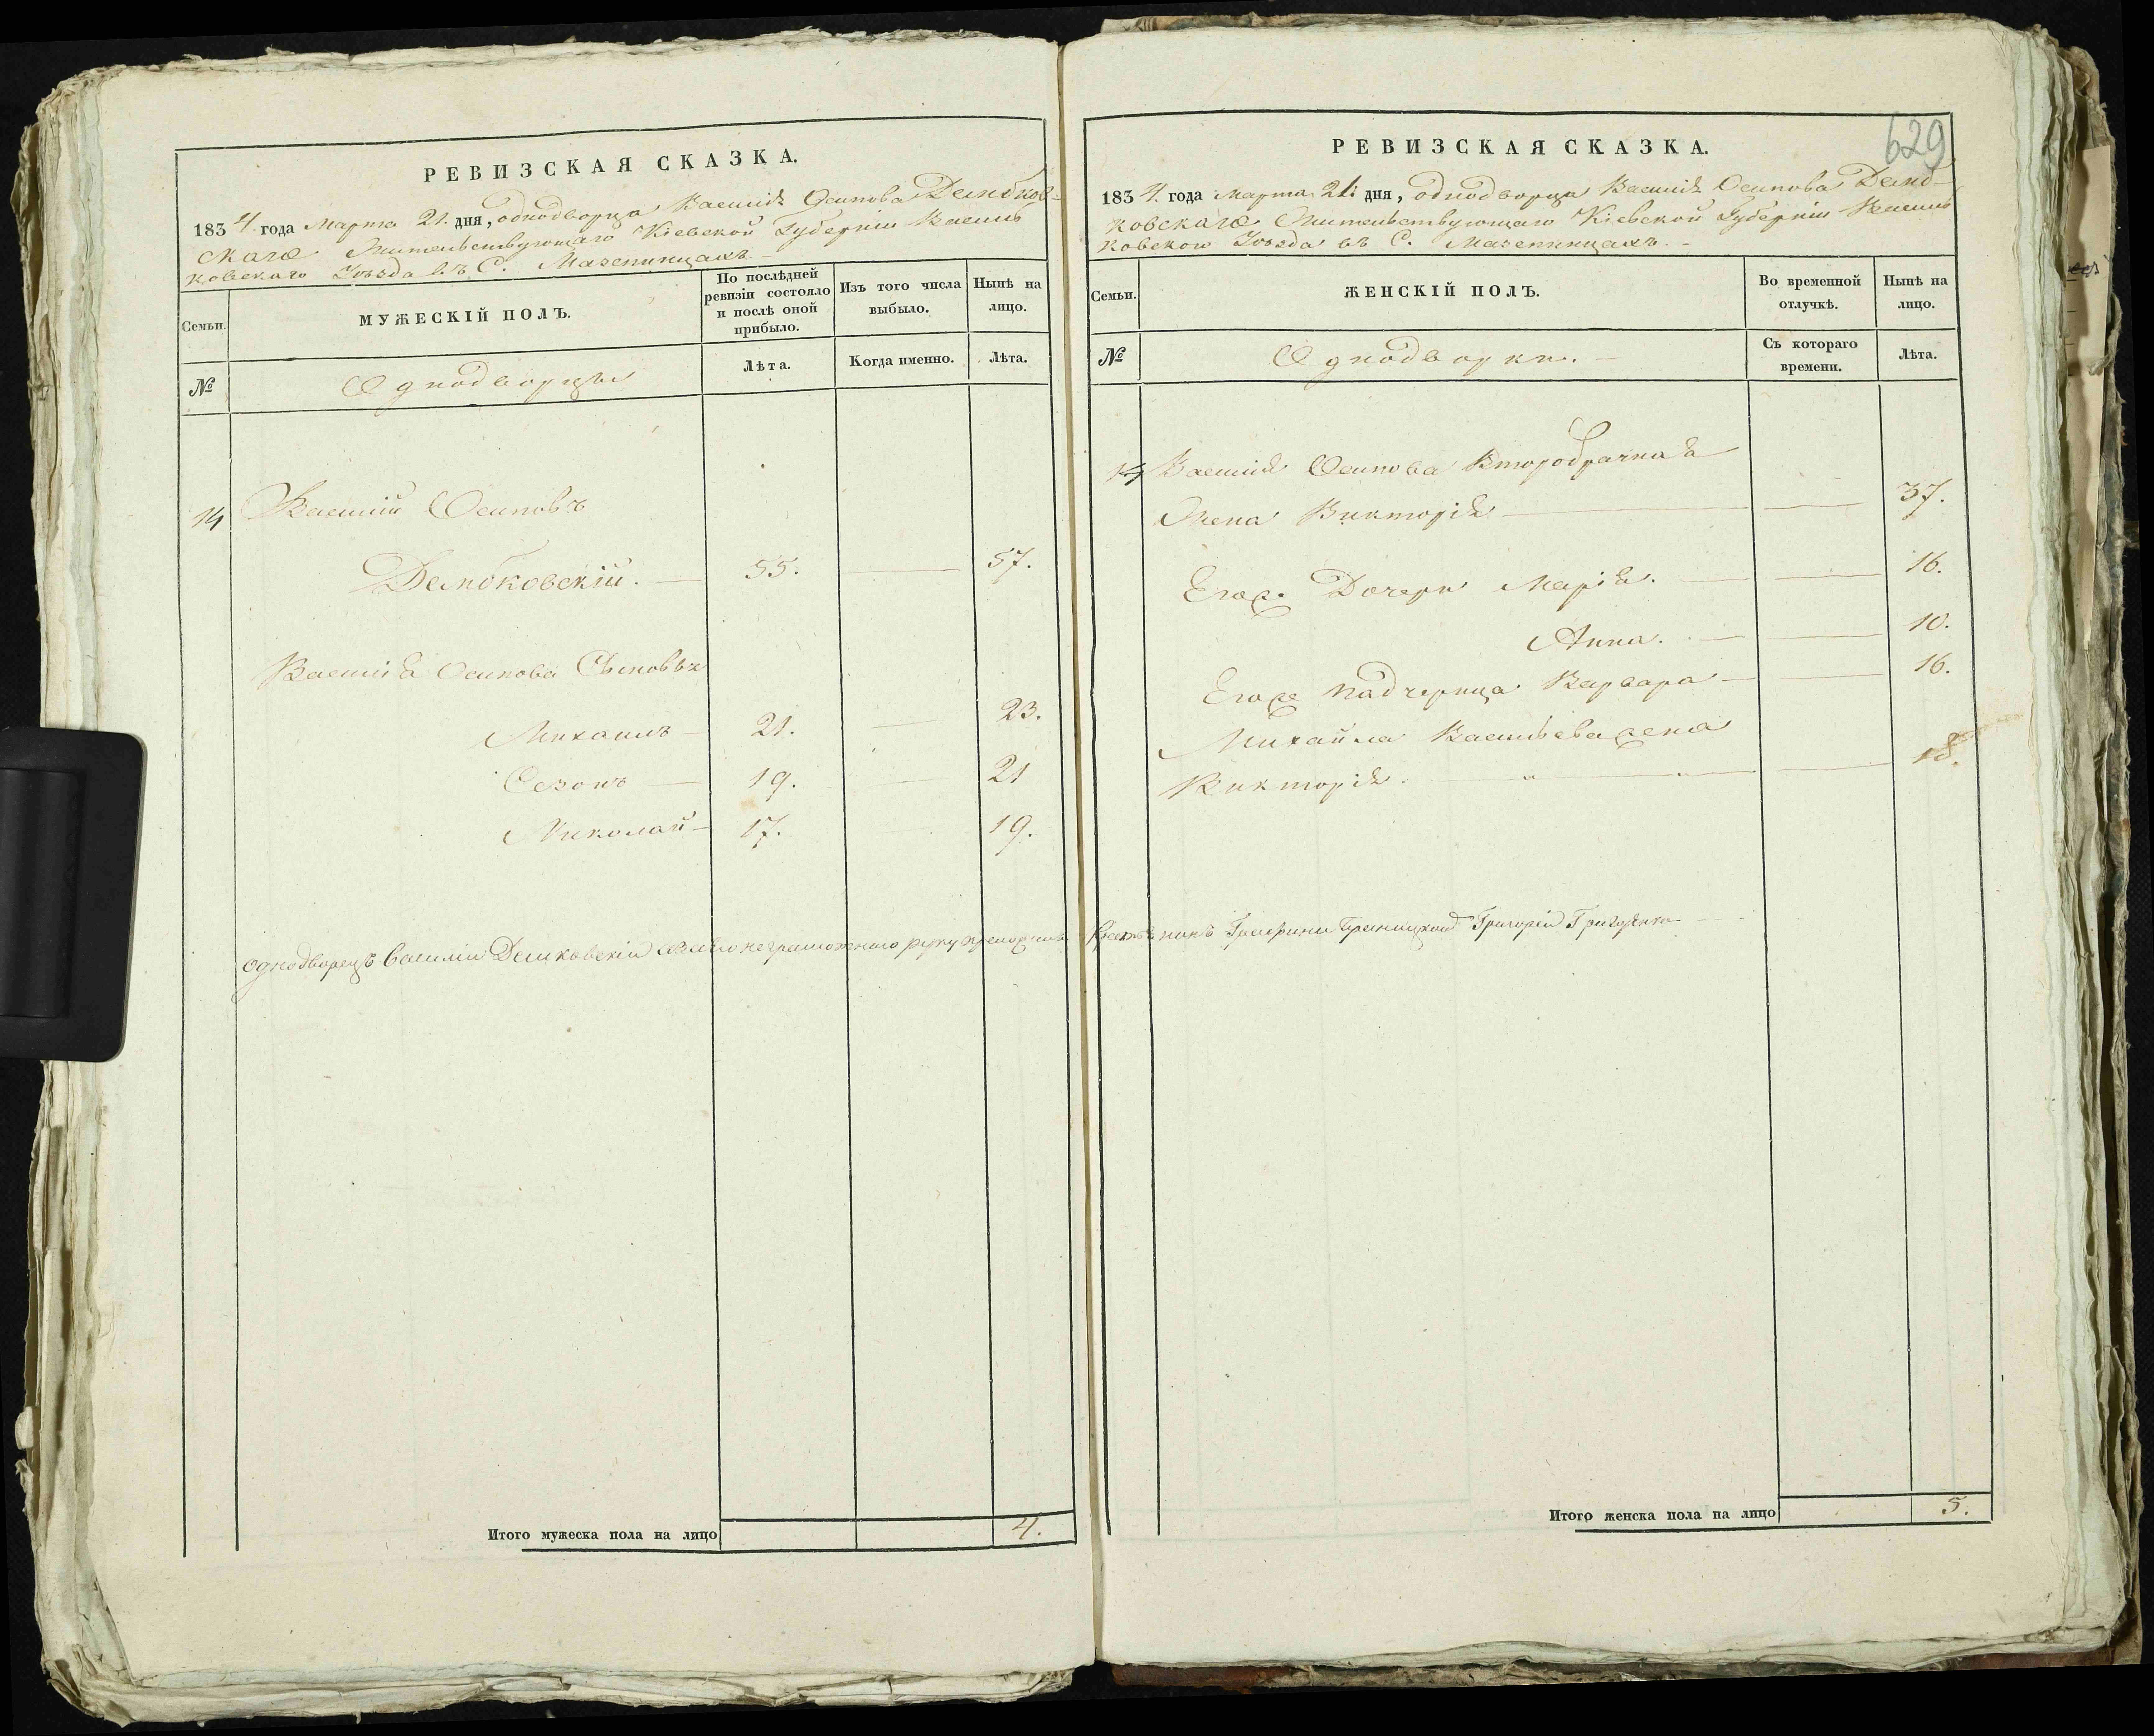 РЕВИЗСКАЯ СКАЗКА.
1834 года Марта 21. дня, однодворца Василія Осипова Дембков-
скаго Жительствующаго Кіевской Губерніи Василь
ковскаго Уѣзда въ С. Мазепинцахъ.-
Семьи.
МУЖЕСКІЙ ПОЛЪ.
По послѣдней ревизіи состояло и послѣ оной прибыло.
Изъ того числа выбыло.
Нынѣ на лицо.
№
Однодворцы
Лѣта.
Когда именно.
Лѣта.
14 Василій Осиповъ
Дембковскій. — 55. — 57.
Василія Осипова Сыновья
Михаилъ — 21. — 23.
Созонъ — 19. — 21
Николай — 17. 19.
однодворецъ Василии Демковскіи
Итого мужеска пола на лицо 4.
629
РЕВИЗСКАЯ СКАЗКА.
1834. года Марта 21: дня, однодворца Василія Осипова Демб-
ковскаго Жительствующаго Кіевской Губерніи Василь
ковского Уѣзда въ С. Мазепинцахъ. -
Семьи.
ЖЕНСКІЙ ПОЛЪ.
Во временной отлучкѣ.
Нынѣ на лицо.
№
Однодворки. —
Съ котораго времени.
Лѣта.
14 Василія Осипова Второбрачная
Жена Викторія — 37.
Егоже Дочери Марія. — 16.
Анна. — 10.
Егоже Падчерица Варвара — 16.
Михайла Васильева жена
Викторія. — 18.
Григорій
Итого женска пола на лицо 5.